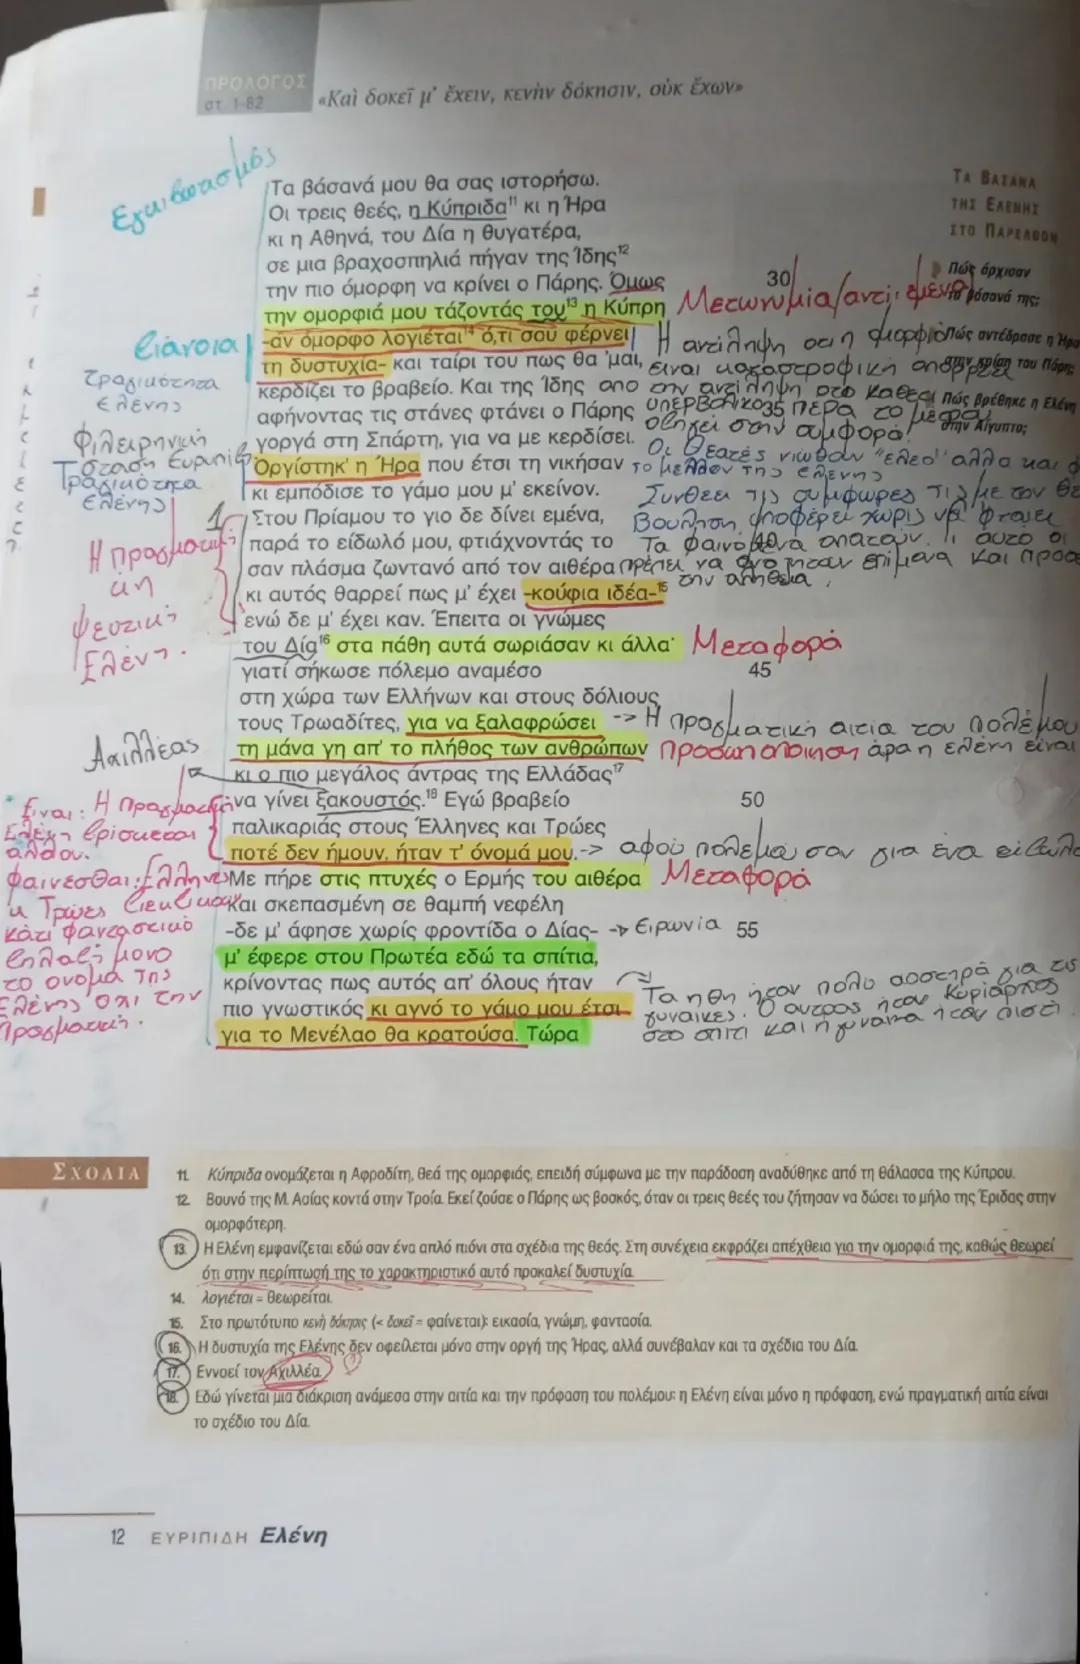 ΠΡΟΛΟΓΟΣ
στ. 1-82
«Καὶ δοκεῖ μ' ἔχειν, κενὴν δόκησιν, οὐκ ἔχων»
Εγκιβωτισμός
Τα βάσανά μου θα σας ιστορήσω.
Οι τρεις θεές, η Κύπριδα¹¹ κι η Ήρα
κι η Αθηνά, του Δία η θυγατέρα,
σε μια βραχοσπηλιά πήγαν της Ίδης¹²
την πιο όμορφη να κρίνει ο Πάρης. Όμως 30
την ομορφιά μου τάζοντάς του¹³ η Κύπρη
-αν όμορφο λογιέται¹⁴ ό,τι σου φέρνει
τη δυστυχία- και ταίρι του πως θα 'μαι,
κερδίζει το βραβείο. Και της Ίδης
αφήνοντας τις στάνες φτάνει ο Πάρης 35
γοργά στη Σπάρτη, για να με κερδίσει.
Οργίστηκ' η Ήρα που έτσι τη νικήσαν
κι εμπόδισε το γάμο μου μ' εκείνον.
Στου Πρίαμου το γιο δε δίνει εμένα,
παρά το είδωλό μου, φτιάχνοντάς το 40
σαν πλάσμα ζωντανό από τον αιθέρα
κι αυτός θαρρεί πως μ' έχει -κούφια ιδέα-¹⁵
ενώ δε μ' έχει καν. Έπειτα οι γνώμες
του Δία¹⁶ στα πάθη αυτά σωριάσαν κι άλλα·
γιατί σήκωσε πόλεμο αναμέσο 45
στη χώρα των Ελλήνων και στους δόλιους
τους Τρωαδίτες, για να ξαλαφρώσει
τη μάνα γη απ' το πλήθος των ανθρώπων
κι ο πιο μεγάλος άντρας της Ελλάδας¹⁷
να γίνει ξακουστός.¹⁸ Εγώ βραβείο 50
παλικαριάς στους Έλληνες και Τρώες
ποτέ δεν ήμουν, ήταν τ' όνομά μου.
Με πήρε στις πτυχές ο Ερμής του αιθέρα
και σκεπασμένη σε θαμπή νεφέλη
-δε μ' άφησε χωρίς φροντίδα ο Δίας- 55
μ' έφερε στου Πρωτέα εδώ τα σπίτια,
κρίνοντας πως αυτός απ' όλους ήταν
πιο γνωστικός κι αγνό το γάμο μου έτσι
για το Μενέλαο θα κρατούσα. Τώρα
ΤΑ ΒΑΣΑΝΑ
ΤΗΣ ΕΛΕΝΗΣ
ΣΤΟ ΠΑΡΕΛΘΟΝ
Πώς άρχισαν
τα βάσανά της;
Πώς αντέδρασε η Ήρα
στην κρίση του Πάρη;
Πώς βρέθηκε η Ελένη
στην Αίγυπτο;
Μετωνυμία/αντί: εμένα
Η αντίληψη ότι η ομορφιά
είναι καταστροφική απορρέει
από την αντίληψη ότι καθετί
υπερβολικό πέρα το μέτρο
οδηγεί στην συμφορά!
Οι θεατές νιώθουν "έλεο" αλλα και
το μέλλον της ελένης
Συνδέει τις συμφωρες της με τον
βούληση, υποφέρει χωρίς να φταίει
Τα φαινόμενα απατούν. Γι αυτο οι
πρέπει να αναζητούν επίμονα και
την αλήθεια.
διάνοια
τραγικότητα
Ελένης
Φιλειρηνική
στάση Ευριπίδη
Τραγικότητα
Ελένης
1
Η πραγματική
κη
ψεύτικη
Ελένη.
Μεταφορά
-> Η πραγματική αιτία του πολέμου
Προσωποποίηση άρα η ελένη είναι
Αχιλλέας
Είναι: Η πραγματική
Ελένη βρίσκεται
αλλού.
φαίνεσθαι: Έλληνες
κ Τρώες διεκδικούν
κάτι φανταστικό
δηλαδή μονο
το ονομα της
Ελένης οχι την
πραγματική.
-> αφού πολέμησαν για ένα είδωλο
Μεταφορά
-> Ειρωνία
Τα ήθη ήταν πολυ αυστηρά για τις
γυναίκες. Ο αντρας ήταν κυρίαρχος
στο σπίτι και η γυναίκα ήταν πιστή.
ΣΧΟΛΙΑ
11. Κύπριδα ονομάζεται η Αφροδίτη, θεά της ομορφιάς, επειδή σύμφωνα με την παράδοση αναδύθηκε από τη θάλασσα της Κύπρου.
12. Βουνό της Μ. Ασίας κοντά στην Τροία. Εκεί ζούσε ο Πάρης ως βοσκός, όταν οι τρεις θεές του ζήτησαν να δώσει το μήλο της Έριδας στην
ομορφότερη.
13. Η Ελένη εμφανίζεται εδώ σαν ένα απλό πιόνι στα σχέδια της θεάς. Στη συνέχεια εκφράζει απέχθεια για την ομορφιά της, καθώς θεωρεί
ότι στην περίπτωσή της το χαρακτηριστικό αυτό προκαλεί δυστυχία.
14. λογιέται = θεωρείται.
15. Στο πρωτότυπο κενὴ δόκησις (< δοκεῖ = φαίνεται): εικασία, γνώμη, φαντασία.
16. Η δυστυχία της Ελένης δεν οφείλεται μόνο στην οργή της Ήρας, αλλά συνέβαλαν και τα σχέδια του Δία.
17. Εννοεί τον Αχιλλέα.
18. Εδώ γίνεται μια διάκριση ανάμεσα στην αιτία και την πρόφαση του πολέμου: η Ελένη είναι μόνο η πρόφαση, ενώ πραγματική αιτία είναι
το σχέδιο του Δία.
12 ΕΥΡΙΠΙΔΗ Ελένη